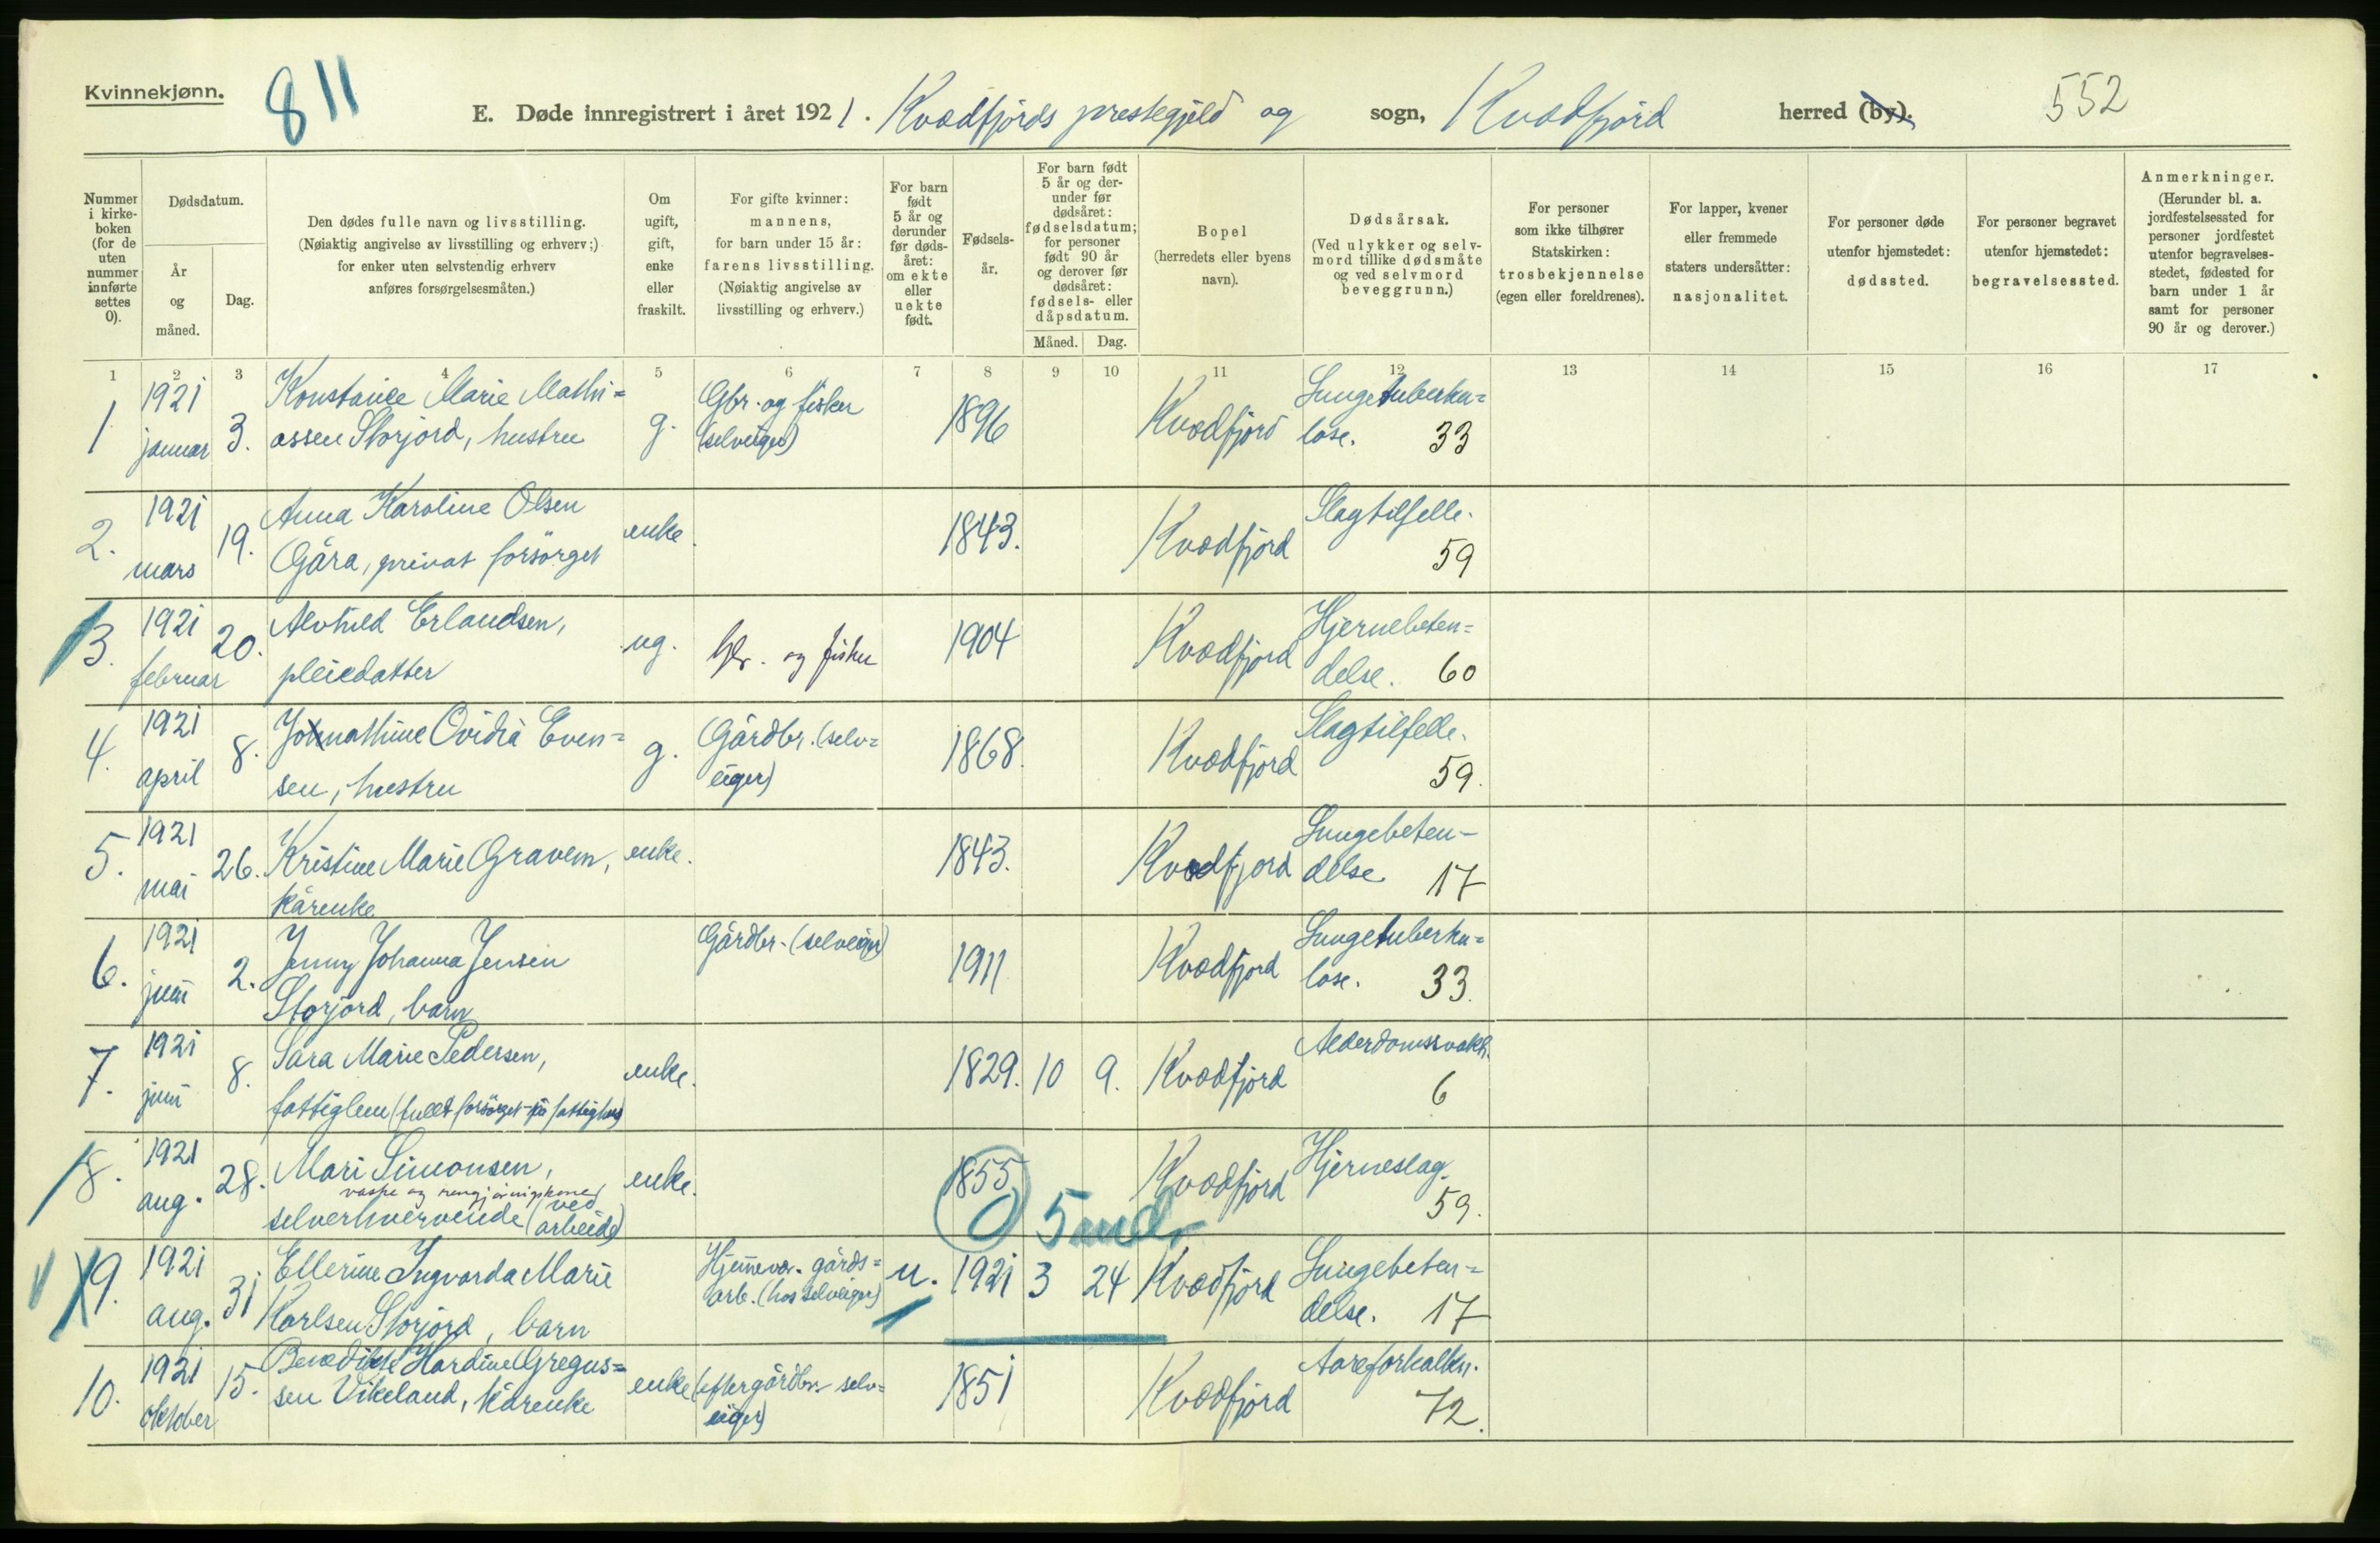 Kvinnekjønn.
811
E. Døde innregistrert i året 1921. Kvædfjords prestegjeld og sogn, Kvædfjord herred (by).
552
Nummer i kirke-boken (for de uten nummer innførte settes 0).
Dødsdatum.
År og måned.
Dag.
Den dødes fulle navn og livsstilling.
(Nøiaktig angivelse av livsstilling og erhverv;)
for enker uten selvstendig erhverv
anføres forsørgelsesmåten.)
Om ugift, gift, enke eller fraskilt.
For gifte kvinner: mannens, for barn under 15 år: farens livsstilling. (Nøiaktig angivelse av livsstilling og erhverv.)
For barn født 5 år og derunder før døds-året: om ekte eller uekte født.
Fødsels-år.
For barn født 5 år og der-under før dødsåret: fødselsdatum; for personer født 90 år og derover før dødsåret: fødsels- eller dåpsdatum.
Måned. Dag.
Bopel (herredets eller byens navn).
Dødsårsak. (Ved ulykker og selv-mord tillike dødsmåte og ved selvmord beveggrunn.)
For personer som ikke tilhører Statskirken: trosbekjennelse (egen eller foreldrenes).
For lapper, kvener eller fremmede staters undersåtter: nasjonalitet.
For personer døde utenfor hjemstedet: dødssted.
For personer begravet utenfor hjemstedet: begravelsessted.
Anmerkninger. (Herunder bl. a. jordfestelsessted for personer jordfestet utenfor begravelses-stedet, fødested for barn under 1 år samt for personer 90 år og derover.)
1 2 3 4 5 6 7 8 9 10 11 12 13 14 15 16 17
1 1921 januar 3. Konstance Marie Mathi=
assen Storjord, hustru g. Gbr. og fisker (selveiger) 1896 Kvædfjord Lungetuberku=
lose. 33
2. 1921 mars 19. Anna Karoline Olsen
Gåra, privat forsörget enke. 1843. Kvædfjord Slagtilfelle.
59
3. 1921 februar 20. Alvhild Erlandsen,
pleiedatter ug. Gbr. og fisker 1904 Kvædfjord Hjernebeten=
delse. 60
4. 1921 april 8. Jonathine Ovidia Even=
sen, hustru g. Gårdbr. (selv=
eiger) 1868. Kvædfjord Slagtilfelle.
59.
5. 1921 mai 26. Kristine Marie Gravem,
kårenke enke. 1843. Kvædfjord Lungebeten-
delse 17
6. 1921 juni 2. Jenny Johanna Jensen
Storjord, barn Gårdbr. (selveiger) 1911 Kvædfjord Lungetuberku=
lose. 33.
7. 1921 juni 8. Sara Marie Pedersen,
fattiglem (fullt forsörget på fattighus) enke. 1829. 10 9. Kvædfjord Alderdomssvakh.
6
8. 1921 aug. 28. Mari Simonsen,
vaske og rengjöringskone
selverhvervende (ved arbeide) enke. 1855 Kvædfjord Hjerneslag.
59.
0 5 mdr
9. 1921 aug. 31 Ellerine Ingvarda Marie
Karlsen Storjord, barn Hjemmev. gårds=
arb. (hos selveiger) u. 1921 3 24 Kvædfjord Lungebeten=
delse. 17
10. 1921 oktober 15. Benedikte Hardine Gregus=
sen Vikeland, kårenke enke (efter gårdbr. selv=
eiger) 1851 Kvædfjord Aareforkalkn.
72.